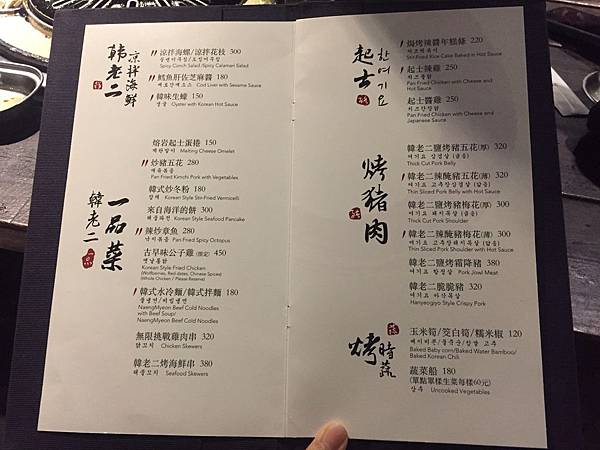 韩老二 凉拌海鮮
涼拌海螺/涼拌花枝 300
골뱅이무침/오징어무침
Spicy Conch Salad /Spicy Calamari Salad
鱈魚肝佐芝麻醬 180
Cod Liver with Sesame Sauce
韓味生蠔 150
생굴 Oyster with Korean Hot Sauce
韓老二 一品菜
熔岩起士蛋捲 150
Melting Cheese Omelet
炒豬五花 280
제육볶음
Pan Fried Kimchi Pork with Vegetables
韓式炒冬粉 180
잡채 Korean Style Stir-Fried Vermicelli
來自海洋的餅 300
해물파전 Korean Style Seafood Pancake
辣炒章魚 280
낙지볶음 Pan Fried Spicy Octopus
古早味公子雞 (限定) 450
옛날통닭
Korean Style Fried Chicken
(Wolfberries, Red dates, Chinese Spices)
(Whole Chicken / Please Reserve)
韓式水冷麵/韓式拌麵 180
물냉면/비빔냉면
NaengMyeon Beef Cold Noodles
with Beef Soup/
NaengMyeon Beef Cold Noodles
無限挑戰雞肉串 340
닭꼬치 Chicken Skewers
韓老二烤海鮮串 380
해물꼬치 Seafood Skewers
起士 한여기요
焗烤辣醬年糕條 220
Stir-Fried Rice Cake Baked in Hot Sauce
起士辣雞 250
치즈불닭
Pan Fried Chicken with Cheese and
Hot Sauce
起士醬雞 250
치즈간장닭
Pan Fried Chicken with Cheese and
Japanese Sauce
烤猪肉
韓老二鹽烤豬五花(厚) 320
여기요 삼겹살 (굵음)
Thick Cut Pork Belly
韓老二辣醃豬五花(薄) 320
여기요 고추장삼겹살 (얇음)
Thin Sliced Pork Belly with Hot Sauce
韓老二鹽烤豬梅花(厚) 300
여기요 돼지목살 (굵음)
Thick Cut Pork Shoulder
韓老二辣醃豬梅花(薄) 300
여기요 고추장돼지목살 (얇음)
Thin Sliced Pork Shoulder with Hot Sauce
韓老二鹽烤霜降豬 380
여기요 항정살 Pork Jowl Meat
韓老二脆脆豬 320
Hanyeogiyo Style Crispy Pork
烤時蔬
玉米筍/茭白筍/糯米椒 120
Baked Baby corn/Baked Water Bamboo/
Baked Korean Chili
蔬菜船 180
(單點單樣生菜每樣60元)
상추 Uncooked Vegetables